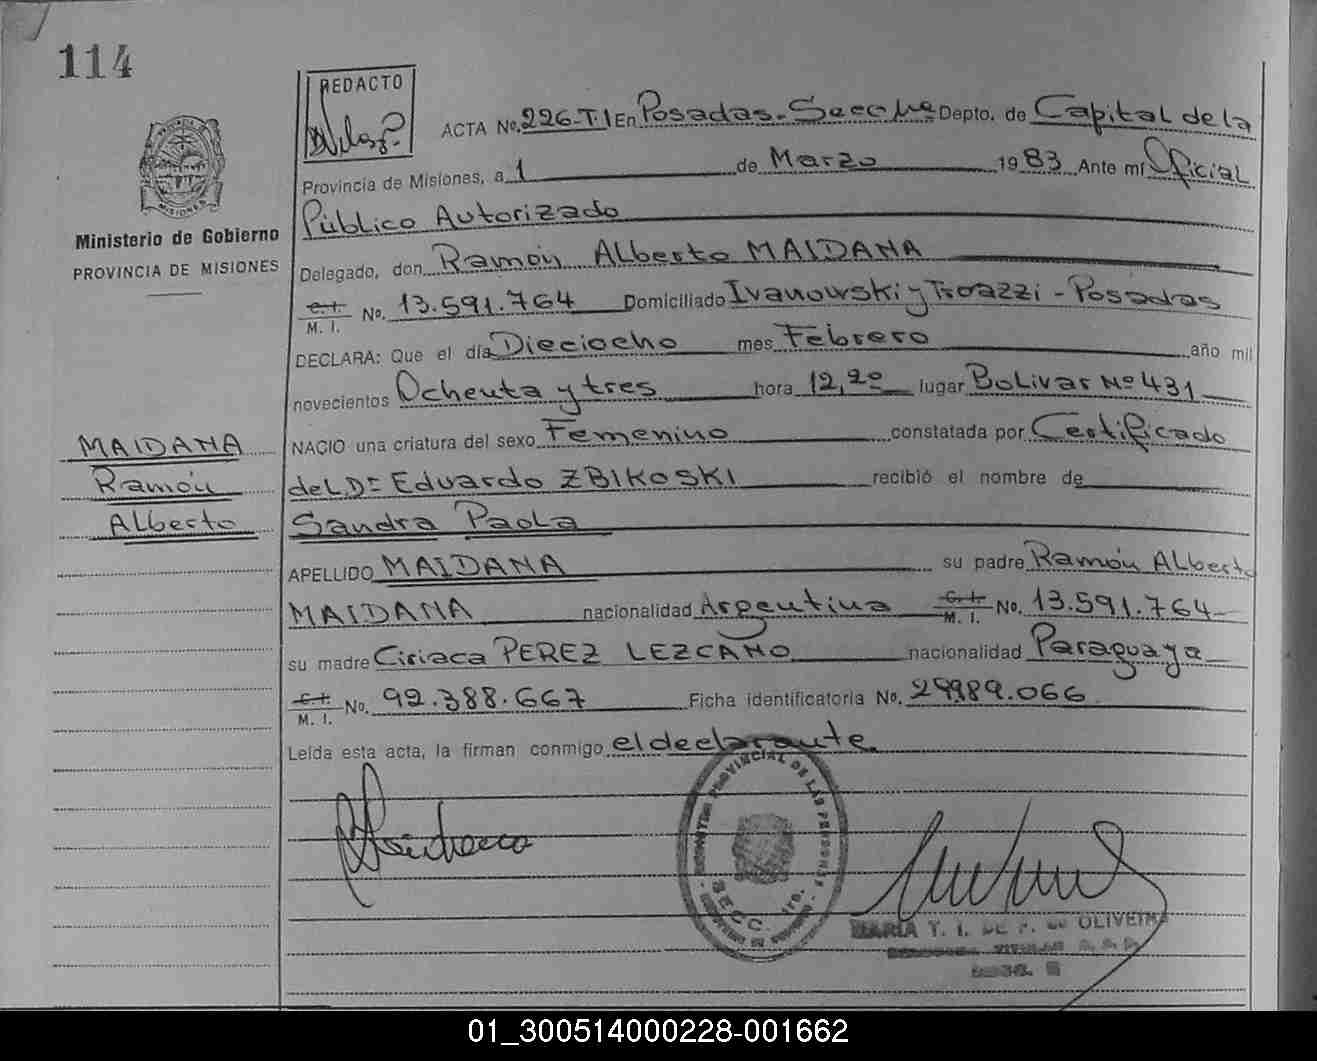 114
REDACTO
ACTA No. 226-T I En Posadas - Secc 1ra Depto. de Capital de la
Provincia de Misiones, a 1 de Marzo 1983 Ante mí Oficial
Público Autorizado
Delegado, don Ramón Alberto MAIDANA
C. I. M. I. No. 13.591.764 Domiciliado Ivanowski y Troazzi - Posadas
DECLARA: Que el día Dieciocho mes Febrero año mil
novecientos Ochenta y tres hora 12,20 lugar Bolivar Nº 431
NACIO una criatura del sexo Femenino constatada por Certificado
del Dr Eduardo ZBIKOSKI recibió el nombre de
Sandra Paola
APELLIDO MAIDANA su padre Ramón Alberto
MAIDANA nacionalidad Argentina C. I. M. I. No. 13.591.764
su madre Ciriaca PEREZ LEZCANO nacionalidad Paraguaya
C. I. M. I. No. 92.388.667 Ficha identificatoria No. 29.989.066
Leída esta acta, la firman conmigo el declarante
PROVINCIA DE MISIONES
Ministerio de Gobierno
PROVINCIA DE MISIONES
MAIDANA
Ramón
Alberto
PROVINCIAL DE LAS PERSONAS
SECC. 1ra.
MARIA T. I. DE F. de OLIVEIRA
01_300514000228-001662